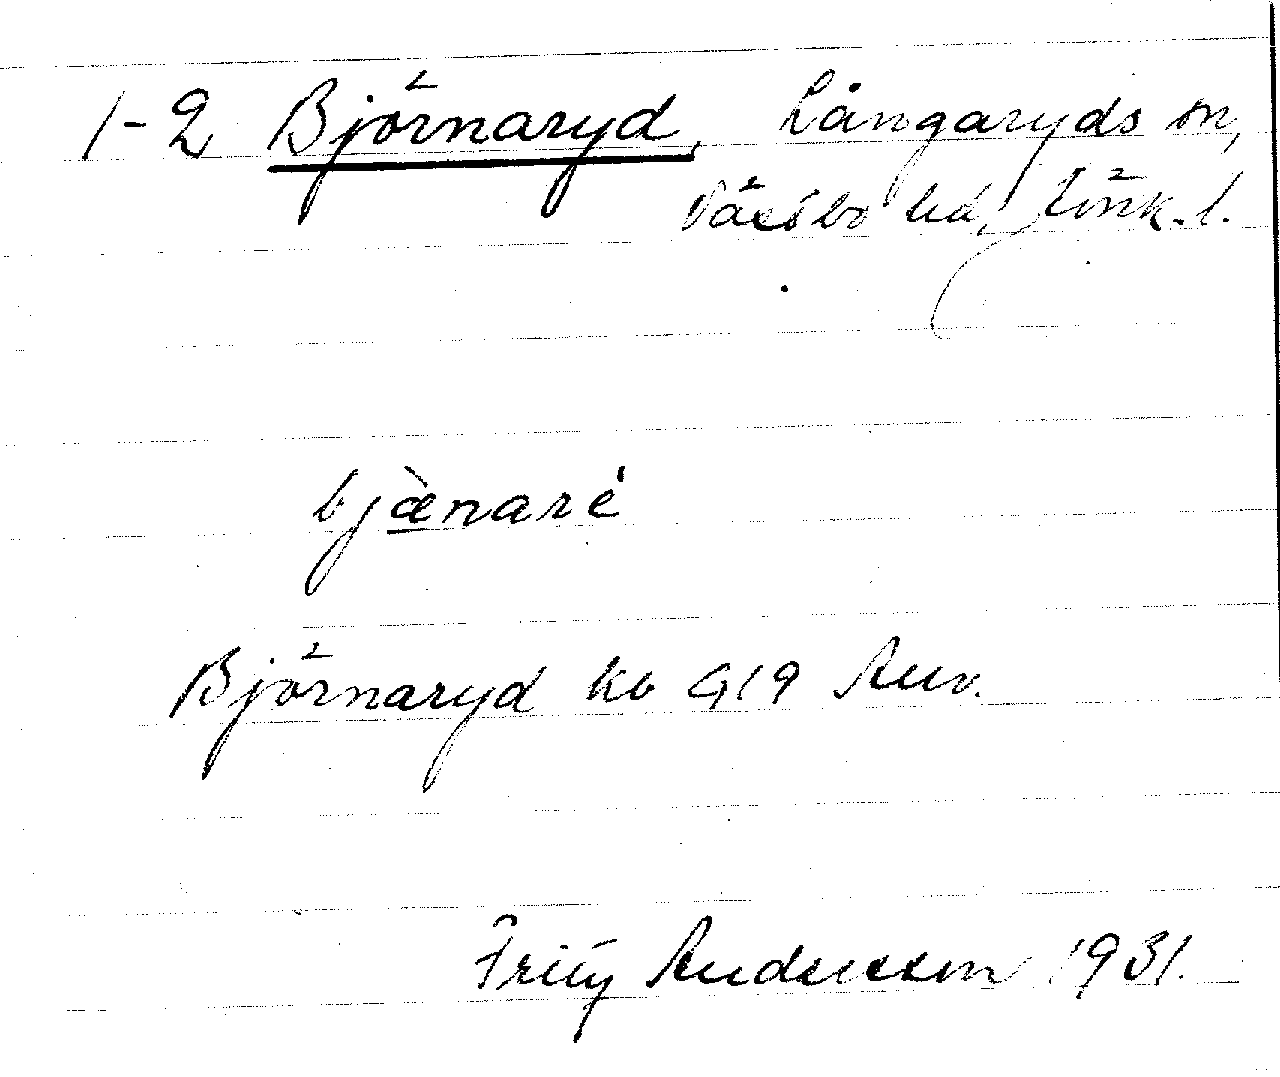 1-2 Björnaryd, Långaryds sn,
Västbo hd, Jönk. l.
bjæ̀naré
Björnaryd kb G19 Anv.
Frity Andersson 1931.